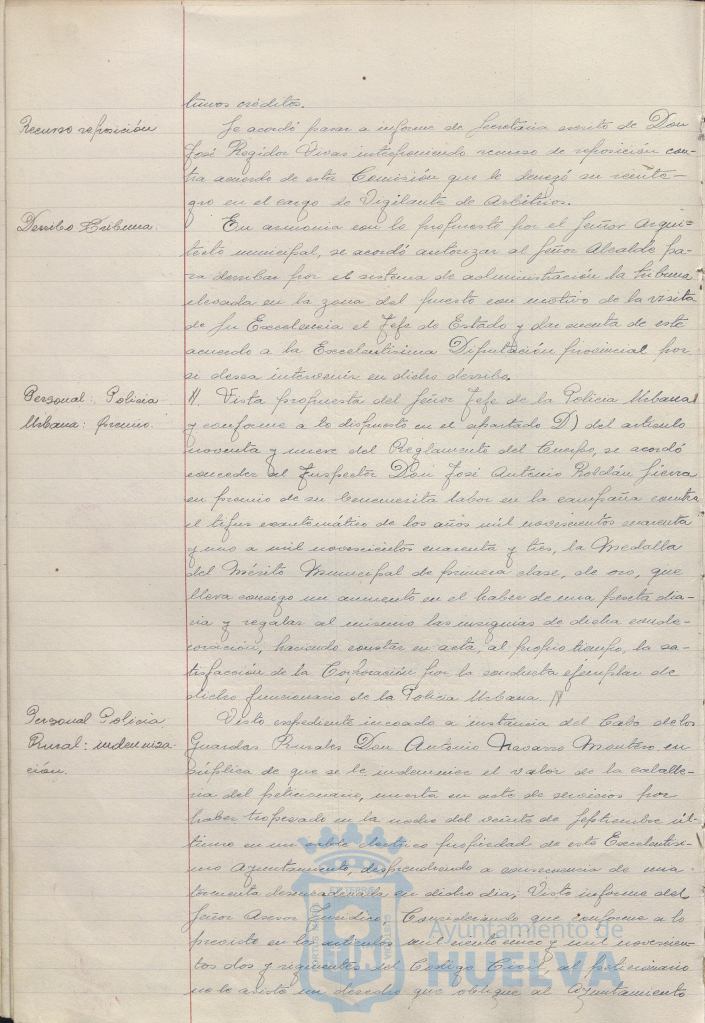 timos créditos.
Recurso reposición
Se acordó pasar a informe de Secretaría escrito de Don
José Regidor Vivas interponiendo recurso de reposición con-
tra acuerdo de esta Comisión que le denegó su reinte-
gro en el cargo de Vigilante de Arbitrios.
Derribo Tribuna.
En armonía con lo propuesto por el Señor Arqui-
tecto municipal, se acordó autorizar al Señor Alcalde pa-
ra derribar por el sistema de administración la tribuna
elevada en la zona del puerto con motivo de la visita
de Su Excelencia el Jefe de Estado y dar cuenta de este
acuerdo a la Excelentísima Diputación provincial por
si desea intervenir en dicho derribo.
Personal: Policía
Urbana: premio.
Vista propuesta del Señor Jefe de la Policía Urbana
y conforme a lo dispuesto en el apartado D) del artículo
noventa y nueve del Reglamento del Cuerpo, se acordó
conceder al Inspector Don José Antonio Roldán Sierra
en premio de su benemérita labor en la campaña contra
el tifus exantemático de los años mil novecientos cuarenta
y uno a mil novecientos cuarenta y tres, la Medalla
del Mérito Municipal de primera clase, de oro, que
lleva consigo un aumento en el haber de una peseta dia-
ria y regalar al mismo las insignias de dicha conde-
coración, haciendo constar en acta, al propio tiempo, la sa-
tisfacción de la Corporación por la conducta ejemplar de
dicho funcionario de la Policía Urbana.
Personal Policía
Rural: indemniza-
ción.
Visto expediente incoado a instancia del Cabo de los
Guardas Rurales Don Antonio Navarro Montero en
súplica de que se le indemnice el valor de la caballe-
ria del peticionario, muerta en acto de servicios por
haber tropezado en la noche del veinte de Septiembre úl-
timo en un cable eléctrico propiedad de este Excelentísi-
mo Ayuntamiento, desprendido a consecuencia de una
tormenta desencadenada en dicho día; Visto informe del
Señor Asesor Jurídico, Considerando que conforme a lo
previsto en los artículos mil ciento cinco y mil novecien-
tos dos y siguientes del Código Civil, al peticionario
no le asiste un derecho que obligue al Ayuntamiento
Ayuntamiento de
HUELVA